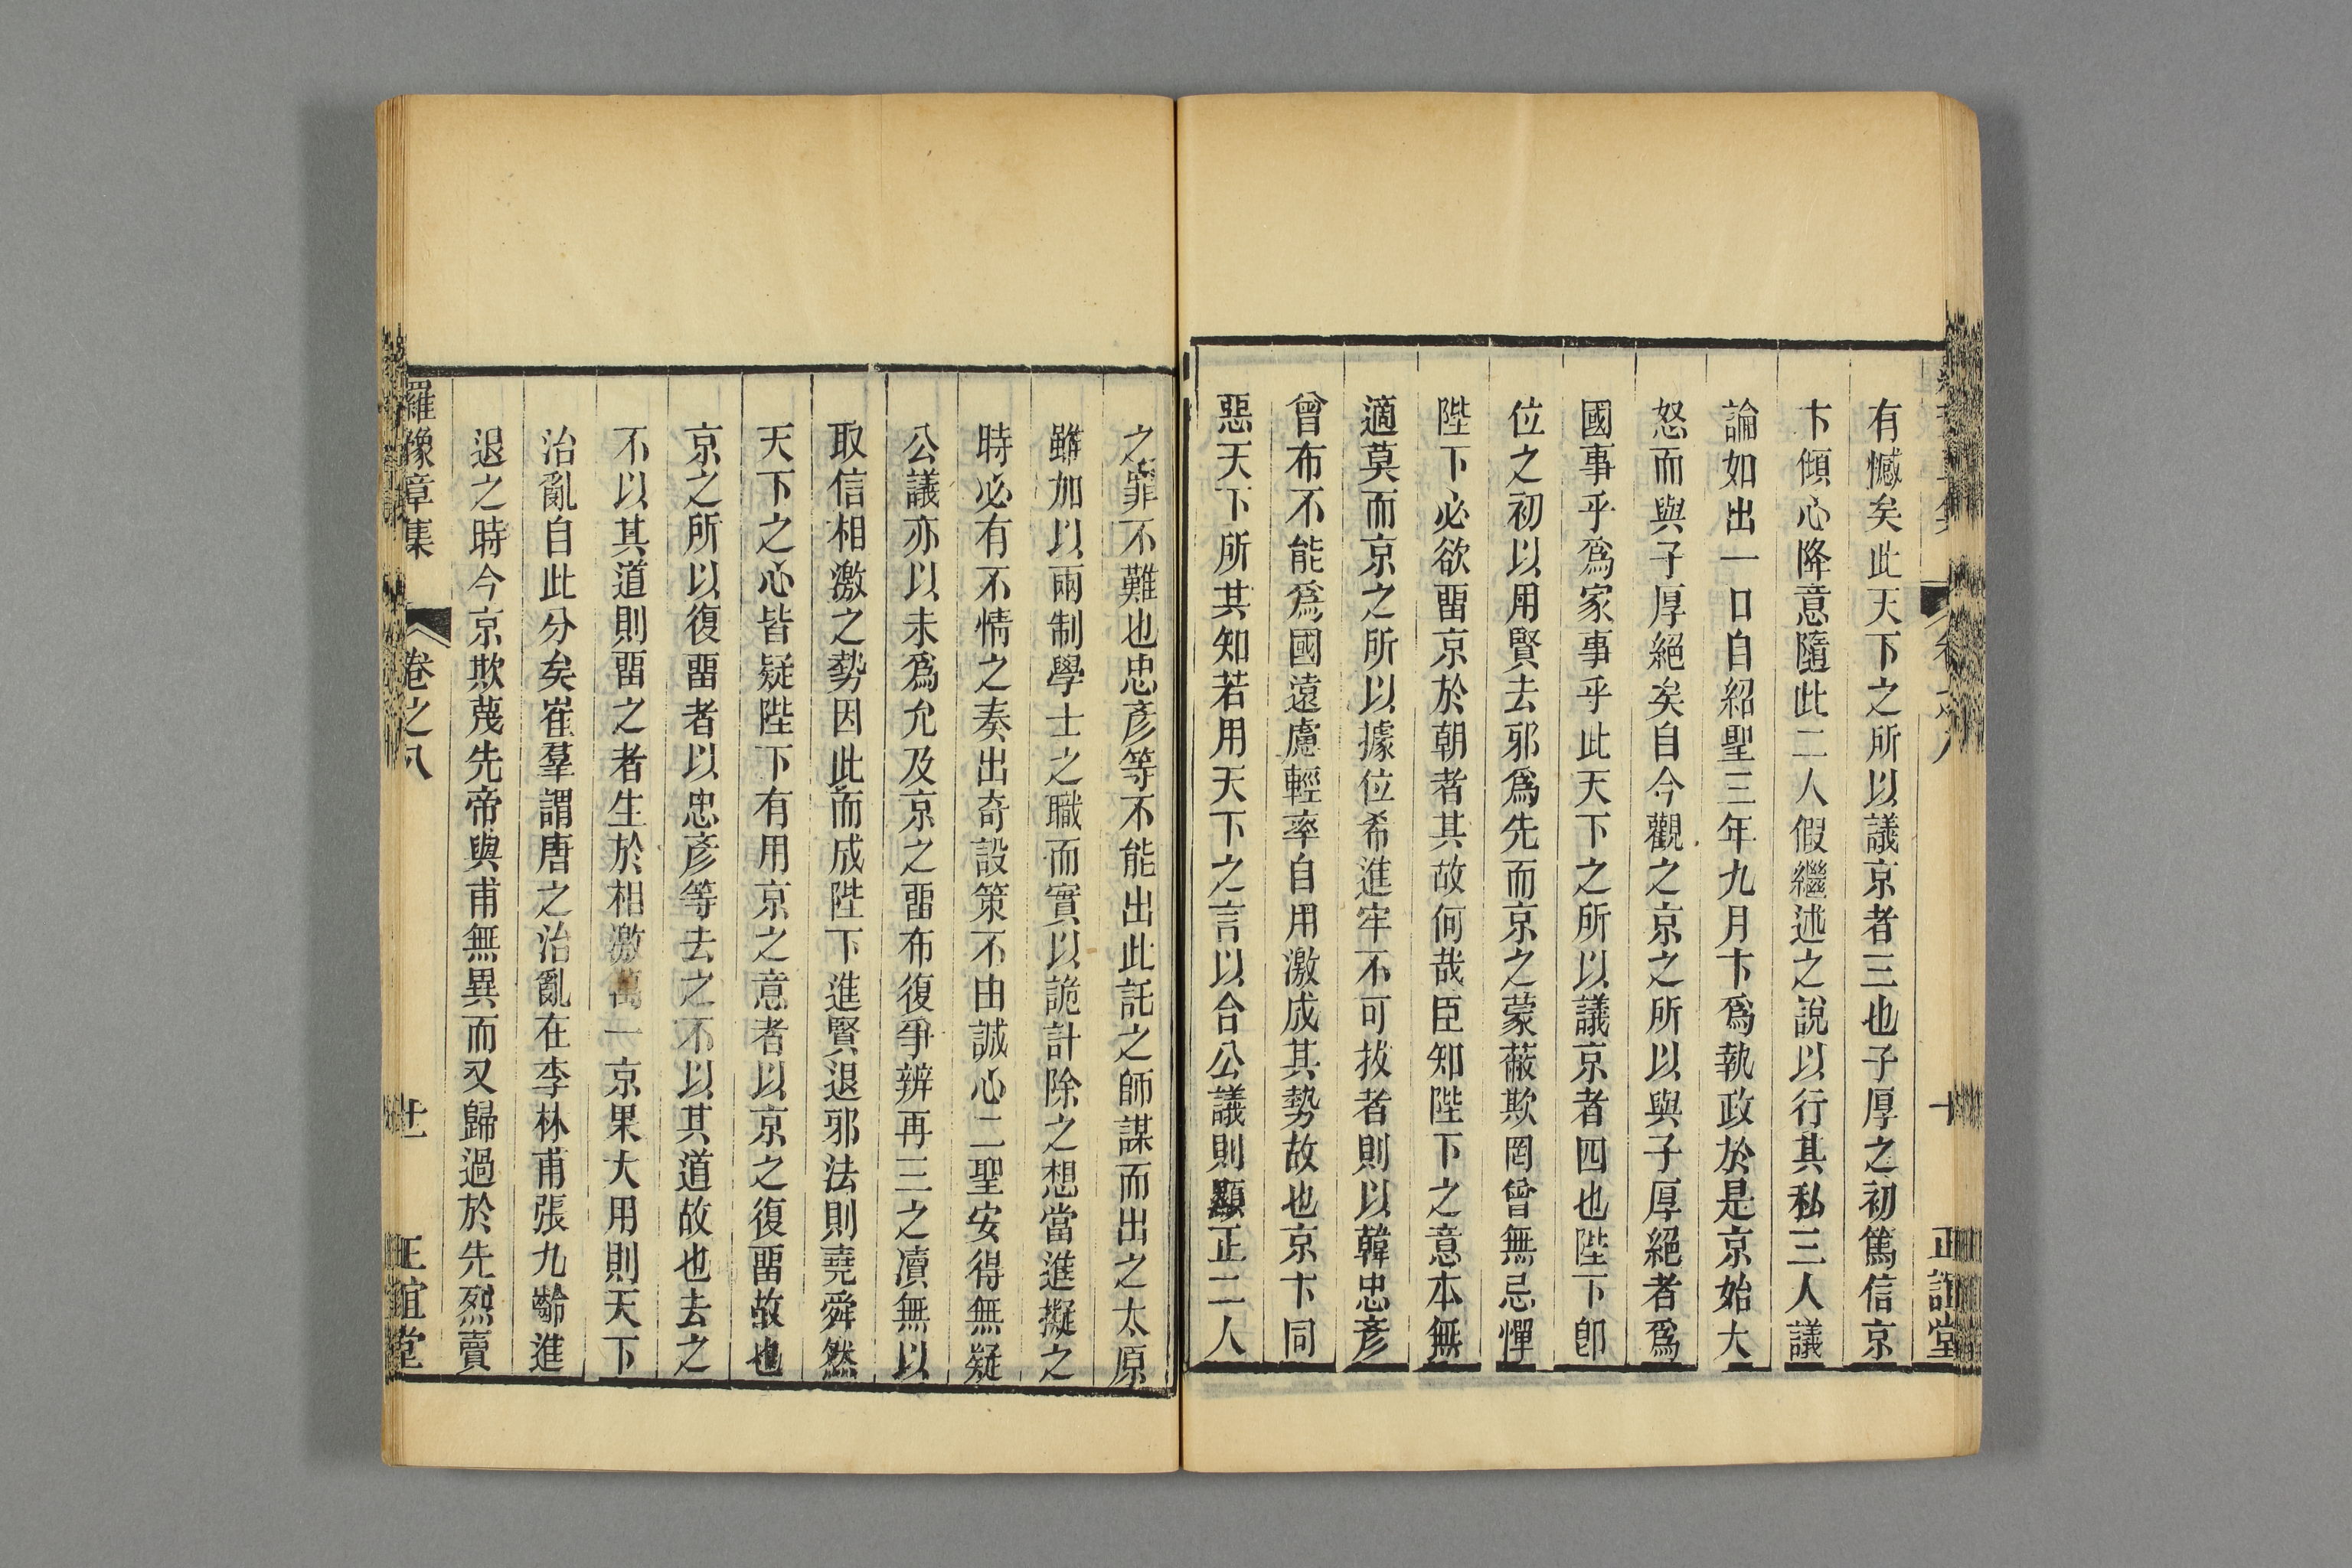 有憾矣此天下之所以議京者三也子厚之初篤信京
卞傾心降意隨此二人假繼述之說以行其私三人議
論如出一口自紹聖三年九月卞爲執政於是京始大
怒而與子厚絕矣自今觀之京之所以與子厚絕者爲
國事乎爲家事乎此天下之所以議京者四也陛下卽
位之初以用賢去邪爲先而京之蒙蔽欺罔曾無忌憚
陛下必欲畱京於朝者其故何哉臣知陛下之意本無
適莫而京之所以據位希進牢不可拔者則以韓忠彥
曾布不能爲國遠慮輕率自用激成其勢故也京卞同
惡天下所其知若用天下之言以合公議則顯正二人
之罪不難也忠彥等不能出此託之師謀而出之太原
雖加以兩制學士之職而實以詭計除之想當進擬之
時必有不情之奏出奇設策不由誠心二聖安得無疑
公議亦以未爲允及京之畱布復爭辨再三之瀆無以
取信相激之勢因此而成陛下進賢退邪法則堯舜然
天下之心皆疑陛下有用京之意者以京之復畱故也
京之所以復畱者以忠彥等去之不以其道故也去之
不以其道則畱之者生於相激萬一京果大用則天下
治亂自此分矣崔羣謂唐之治亂在李林甫張九齡進
退之時今京欺蔑先帝與甫無異而又歸過於先烈賣
羅豫章集 卷之八 十一 正誼堂